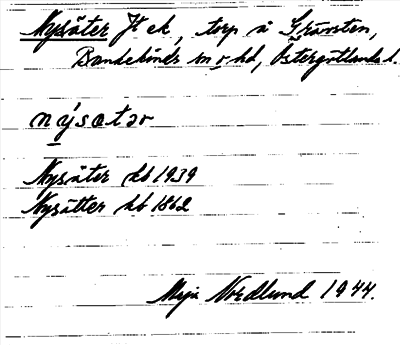 Nysäter Jt ek, torp å Grävsten,
Bankekinds sn o hd, Östergötlands l.
nýsætər
Nysäter kb 1939
Nysätter kb 1862
Maja Nordlund 1944.